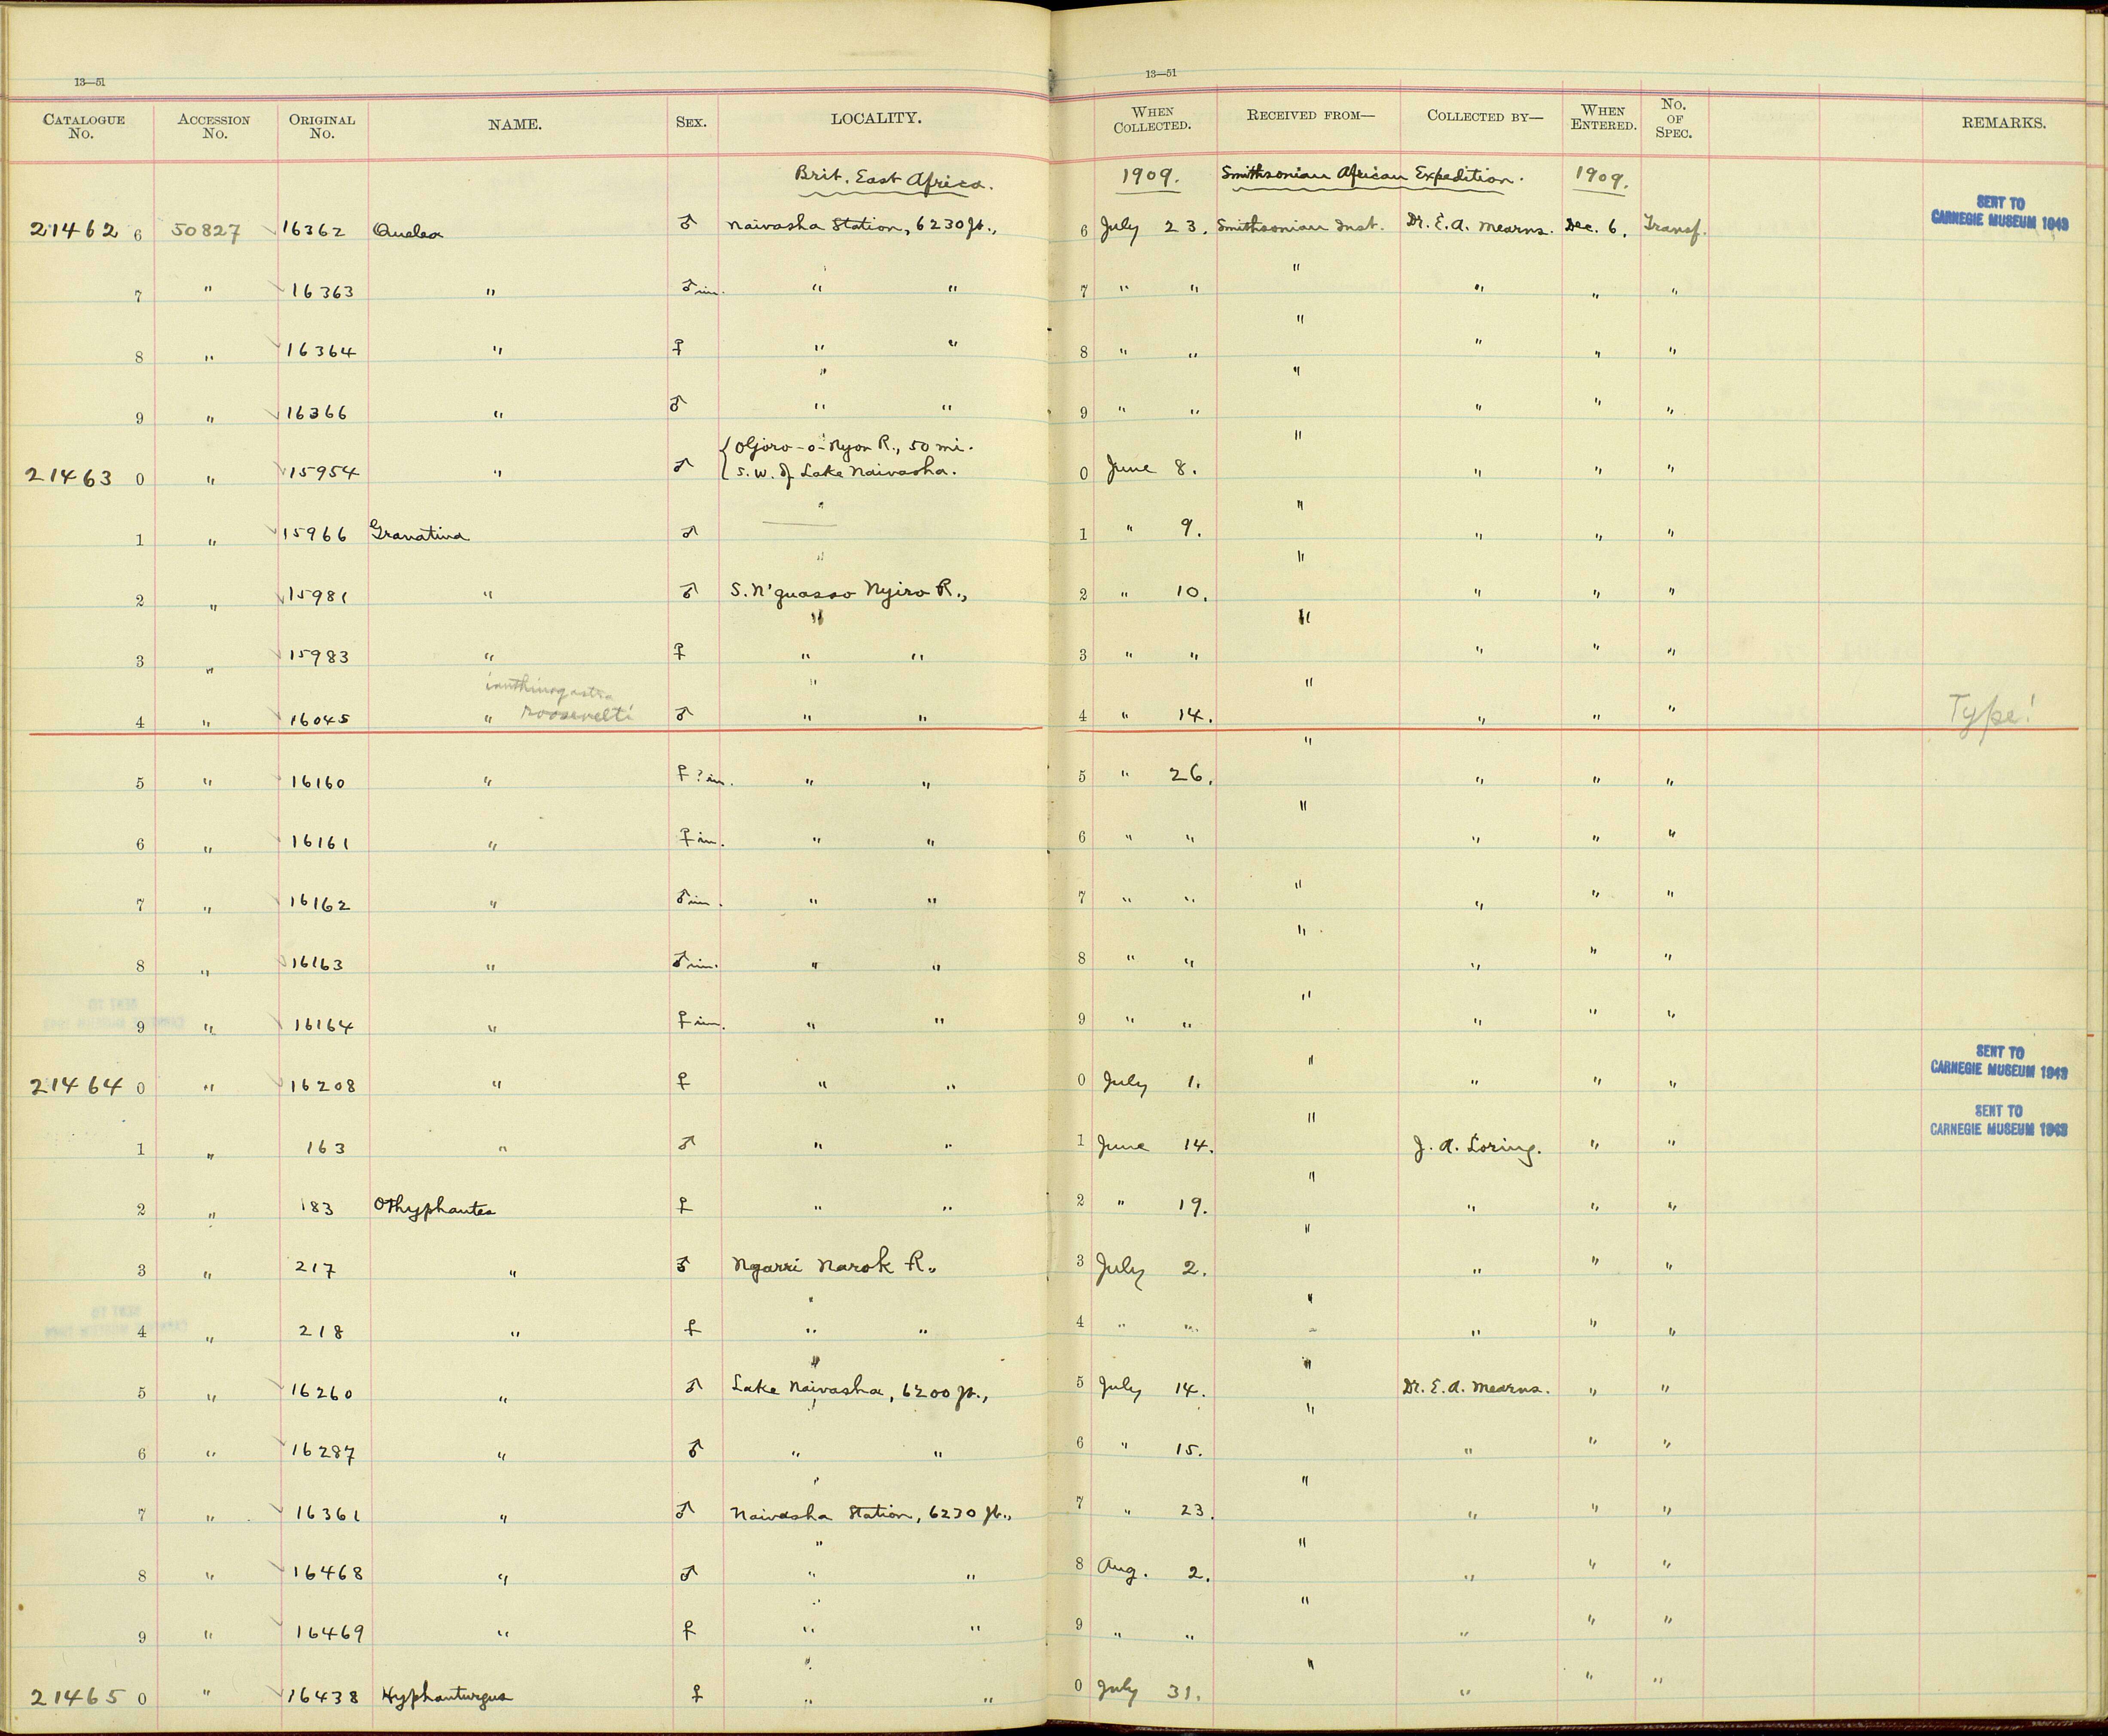 13—51
13—51
CATALOGUE No. ACCESSION No. ORIGINAL No. NAME. SEX. LOCALITY. WHEN COLLECTED. RECEIVED FROM— COLLECTED BY— WHEN ENTERED. No. OF SPEC. REMARKS.
Brit. East Africa. 1909. Smithsonian African Expedition. 1909.
21462 6 50827 16362 Quelea ♂ Naivasha Station, 6230 ft., 6 July 23. Smithsonian Inst. Dr. E. A. Mearns. Dec. 6. Transf. SENT TO CARNEGIE MUSEUM 1943
7 " 16363 " ♂ im. " " 7 " " " " " "
8 " 16364 " ♀ " " 8 " " " " " "
9 " 16366 " ♂ " " 9 " " " " " "
21463 0 " 15954 " ♂ { Oljoro-o-Nyon R., 50 mi. S.W. of Lake Naivasha. 0 June 8. " " " "
1 " 15966 Granatina ♂ 1 " 9. " " " "
2 " 15981 " ♂ S. N'guasso Nyiro R., 2 " 10. " " " "
3 " 15983 " ♀ " " 3 " " " " " "
ianthinogastra
4 " 16045 " roosevelti ♂ " " 4 " 14. " " " " Type!
5 " 16160 " ♀ ? im. " " 5 " 26. " " " "
6 " 16161 " ♀ im. " " 6 " " " " " "
7 " 16162 " ♂ im. " " 7 " " " " " "
8 " 16163 " ♂ im. " " 8 " " " " " "
9 " 16164 " ♀ im. " " 9 " " " " " "
21464 0 " 16208 " ♀ " " 0 July 1. " " " " SENT TO CARNEGIE MUSEUM 1943
1 " 163 " ♂ " " 1 June 14. " J. A. Loring. " " SENT TO CARNEGIE MUSEUM 1943
2 " 183 Othyphantes ♀ " " 2 " 19. " " " "
3 " 217 " ♂ Ngarri Narok R., 3 July 2. " " " "
4 " 218 " ♀ " " 4 " " " " " "
5 " 16260 " ♂ Lake Naivasha, 6200 ft., 5 July 14. " Dr. E. A. Mearns. " "
6 " 16287 " ♂ " " 6 " 15. " " " "
7 " 16361 " ♂ Naivasha Station, 6230 ft., 7 " 23. " " " "
8 " 16468 " ♂ " " 8 Aug. 2. " " " "
9 " 16469 " ♀ " " 9 " " " " " "
21465 0 " 16438 Hyphanturgus ♀ " " 0 July 31. " " " "